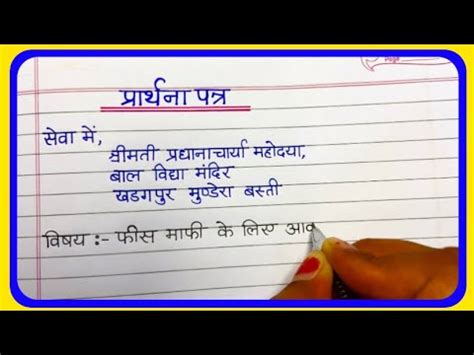 Page
प्रार्थना पत्र
सेवा में,
श्रीमती प्रधानाचार्या महोदया,
बाल विद्या मंदिर
खडगपुर मुण्डेरा बस्ती
विषय :- फीस माफी के लिए आव